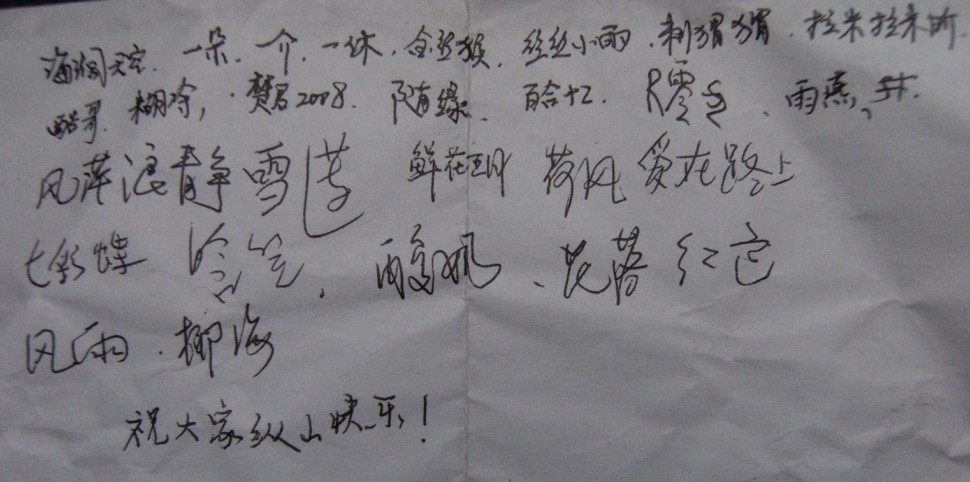 海阔天空、一朵、一介、一休、金丝猴、丝丝小雨、刺猬猬、拉米拉米
酷哥、糊冷，樊君2008、随缘、百合十二、R零、雨燕、井
风萍浪静 雪莲 鲜花 荷风 爱在路上
七彩蝶 冷笑、酸枫、花落 红
风雨、柳海
祝大家纵山快乐！